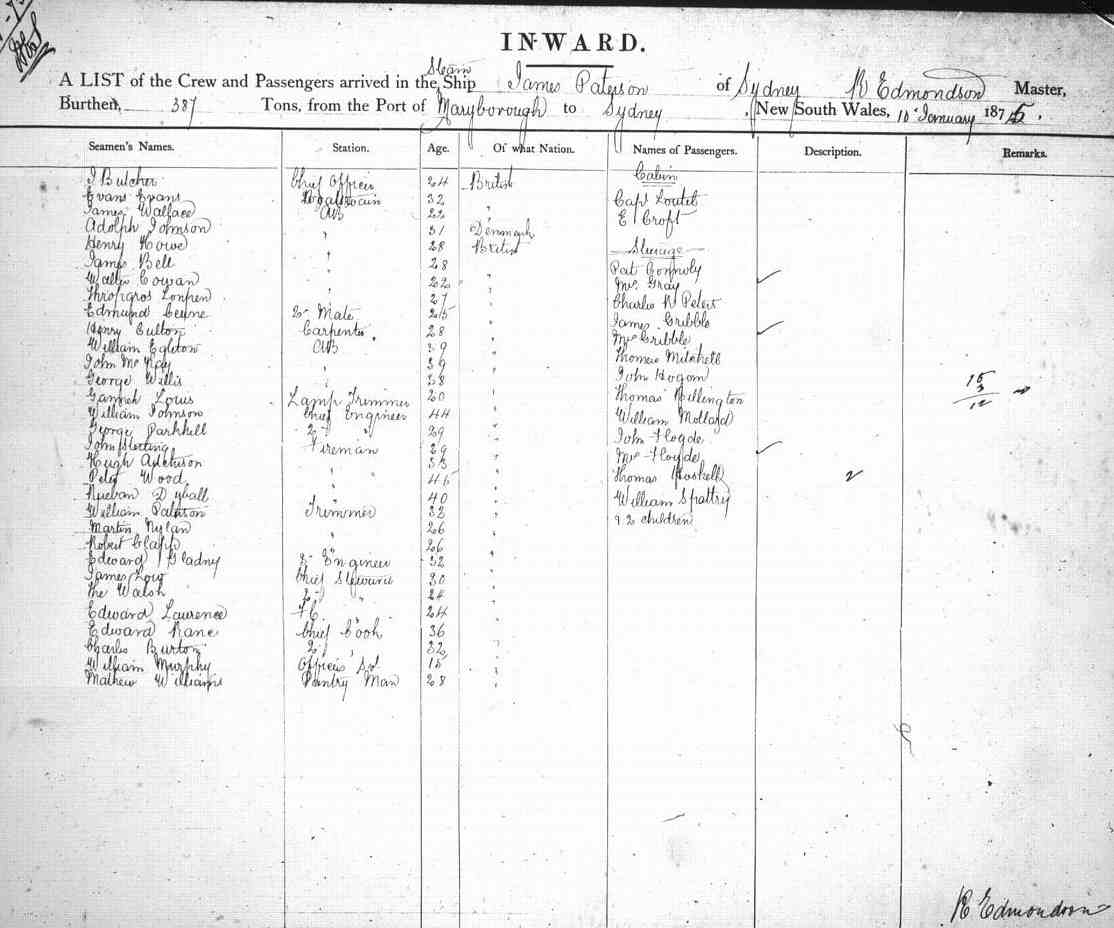 INWARD.
A LIST of the Crew and Passengers arrived in the Steam Ship James Paterson of Sydney R Edmondson Master,
Burthen, 387 Tons, from the Port of Maryborough to Sydney, New South Wales, 10 January 1875.
Seamen's Names. Station. Age. Of what Nation. Names of Passengers. Description. Remarks.
J Butcher Chief Officer 24 British Cabin
Evans Evans Boatswain 32 " Capt Loutit
James Wallace AB 22 E Croft
Adolph Johnson " 31 Denmark
Henry Howe " 28 British Steerage
James Bell " 28 Pat Connoly
Walter Cowan 22 " Mrs Gray
27 " Charles R Peters
Edmund 2nd Mate 25 James Gribble
Henry Carpenter 28 " Mrs Gribble
William Egleton AB 39 " Thomas Mitchell
John McKay 39
George Willis " 38 " John Hogan 15
3
12
Louis Lamp Trimmer 20 " Thomas Billington
William Johnson Chief Engineer 44 " William Mollard
George Parkhill 2nd " 29 " John Floyde
John Fireman 29 " Mrs Floyde
Hugh Adchison
Peter Wood " 46 " Thomas 2
Rueban Dyball " 40 " William
William Paterson Trimmer 32 " & 2 children
Martin Nylan 26
Robert Clapp " 26 "
Edward Gladny 2nd Engineer 32 "
James Chief Steward 30 "
Walsh 2nd " 24 "
Edward Laurence 24 "
Edward Kane Chief Cook 36 "
Charles Burton 2nd " 32 "
William Murphy Officers' Svt 15 "
Mathew Williams Pantry Man 28 "
R Edmondson